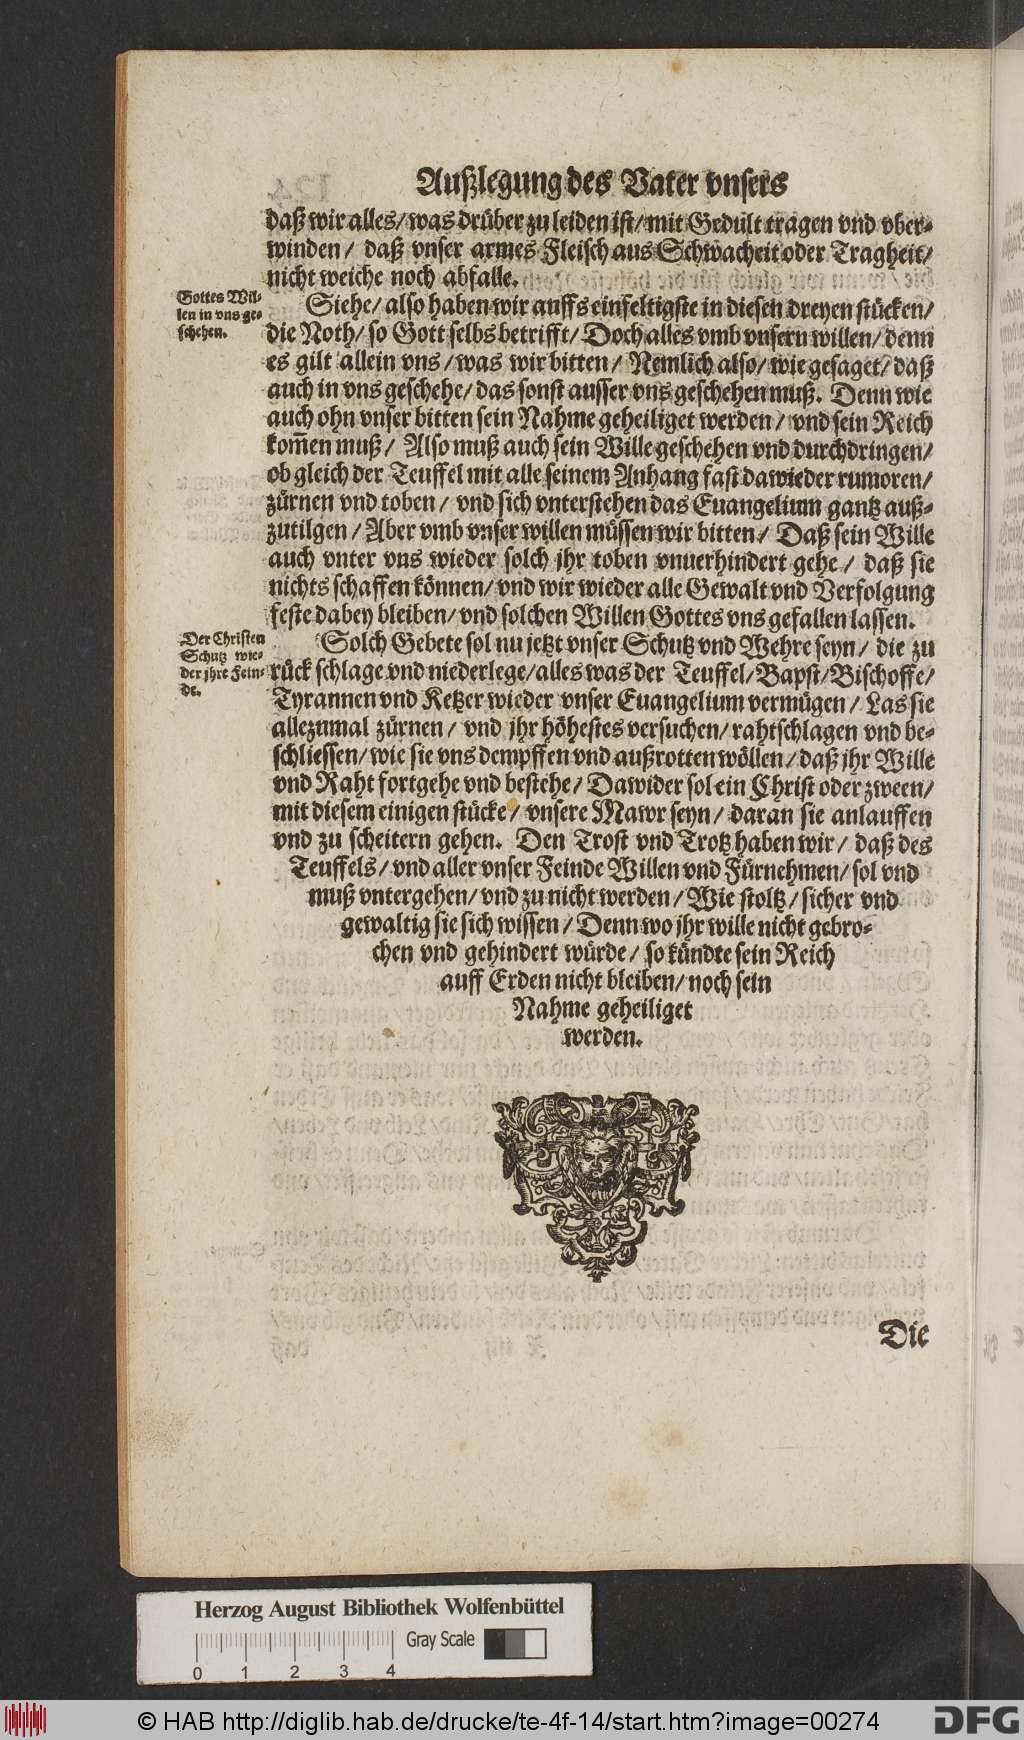 Außlegung des Vater vnsers
daß wir alles/ was drüber zu leiden ist/ mit Gedült tragen vnd vber-
winden/ daß vnser armes Fleisch aus Schwacheit oder Tragheit/
nicht weiche noch abfalle.
Gottes Wil-
len in vns ge-
schehen.
Siehe/ also haben wir auffs einfeltigste in diesen dreyen stücken/
die Noth/ so Gott selbs betrifft/ Doch alles vmb vnsern willen/ denn
es gilt allein vns/ was wir bitten/ Nemlich also/ wie gesaget/ daß
auch in vns geschehe/ das sonst ausser vns geschehen muß. Denn wie
auch ohn vnser bitten sein Nahme geheiliget werden/ vnd sein Reich
kom̄en muß/ Also muß auch sein Wille geschehen vnd durchdringen/
ob gleich der Teuffel mit alle seinem Anhang fast dawieder rumoren/
zürnen vnd toben/ vnd sich vnterstehen das Euangelium gantz auß-
zutilgen/ Aber vmb vnser willen müssen wir bitten/ Daß sein Wille
auch vnter vns wieder solch jhr toben vnuerhindert gehe/ daß sie
nichts schaffen können/ vnd wir wieder alle Gewalt vnd Verfolgung
feste dabey bleiben/ vnd solchen Willen Gottes vns gefallen lassen.
Der Christen
Schutz wie-
der jhre Fein-
de.
Solch Gebete sol nu jetzt vnser Schutz vnd Wehre seyn/ die zu
rück schlage vnd niederlege/ alles was der Teuffel/ Bapst/ Bischoffe/
Tyrannen vnd Ketzer wieder vnser Euangelium vermügen/ Las sie
allezumal zürnen/ vnd jhr höhestes versuchen/ rahtschlagen vnd be-
schliessen/ wie sie vns dempffen vnd außrotten wöllen/ daß jhr Wille
vnd Raht fortgehe vnd bestehe/ Dawider sol ein Christ oder zween/
mit diesem einigen stücke/ vnsere Mawr seyn/ daran sie anlauffen
vnd zu scheitern gehen. Den Trost vnd Trotz haben wir/ daß des
Teuffels/ vnd aller vnser Feinde Willen vnd Fürnehmen/ sol vnd
muß vntergehen/ vnd zu nicht werden/ Wie stoltz/ sicher vnd
gewaltig sie sich wissen/ Denn wo jhr wille nicht gebro-
chen vnd gehindert würde/ so kündte sein Reich
auff Erden nicht bleiben/ noch sein
Nahme geheiliget
werden.
Die
Herzog August Bibliothek Wolfenbüttel
Gray Scale
0 1 2 3 4
© HAB http://diglib.hab.de/drucke/te-4f-14/start.htm?image=00274
DFG